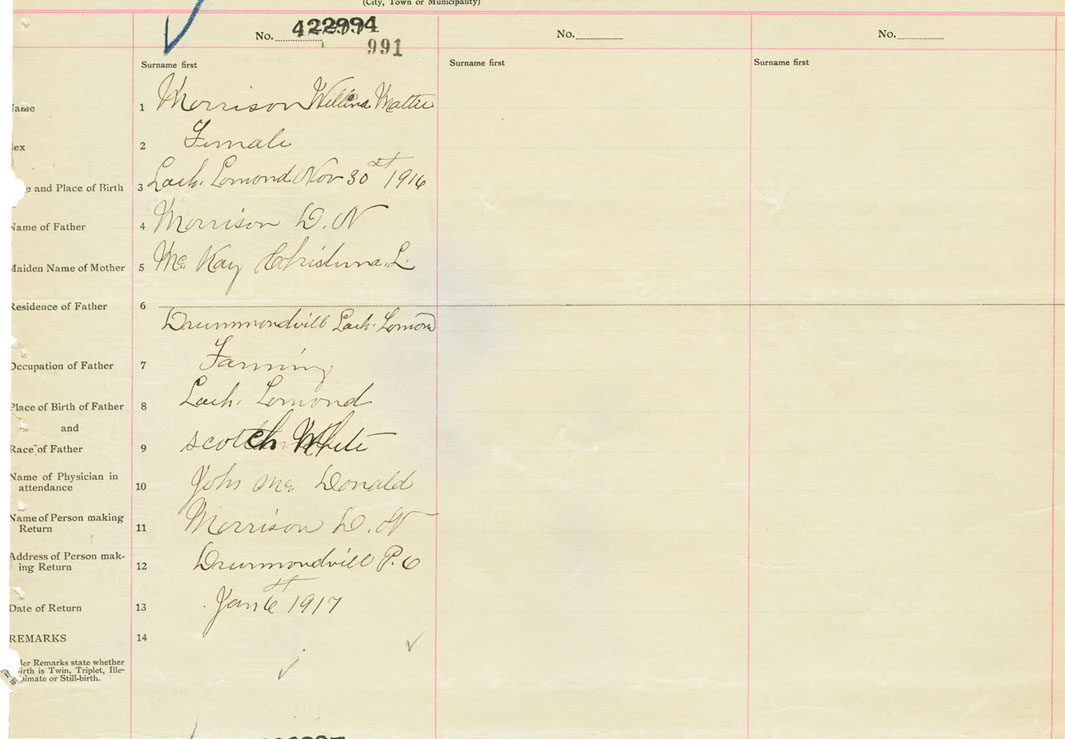 (City, Town or Municipality)
No. 422994 No. No.
991
Surname first Surname first Surname first
1 Morrison Mattie
Sex 2 Female
and Place of Birth 3 Loch. Lomond Nov 30 1916
Name of Father 4 Morrison D. N
Maiden Name of Mother 5 Mc Kay Christina. L.
Residence of Father 6
Drummondvill Loch. Lomond
Occupation of Father 7 Farming
Place of Birth of Father 8 Loch. Lomond
and
Race of Father 9 Scotch White
Name of Physician in
attendance 10 John Mc Donald
Name of Person making
Return 11 Morrison D. N
Address of Person mak-
ing Return 12 Drummondvill P. O
Date of Return 13 Jan 6 1917
REMARKS 14
Under Remarks state whether
birth is Twin, Triplet, Ille-
gitimate or Still-birth.